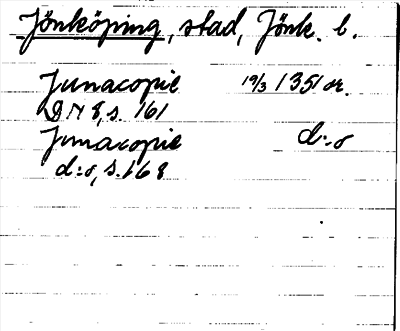 Jönköping, stad, Jönk. l.
Junacopie 19/3 1351 or.
DN 8, s. 161
Junacopie d:o
d:o, s. 168